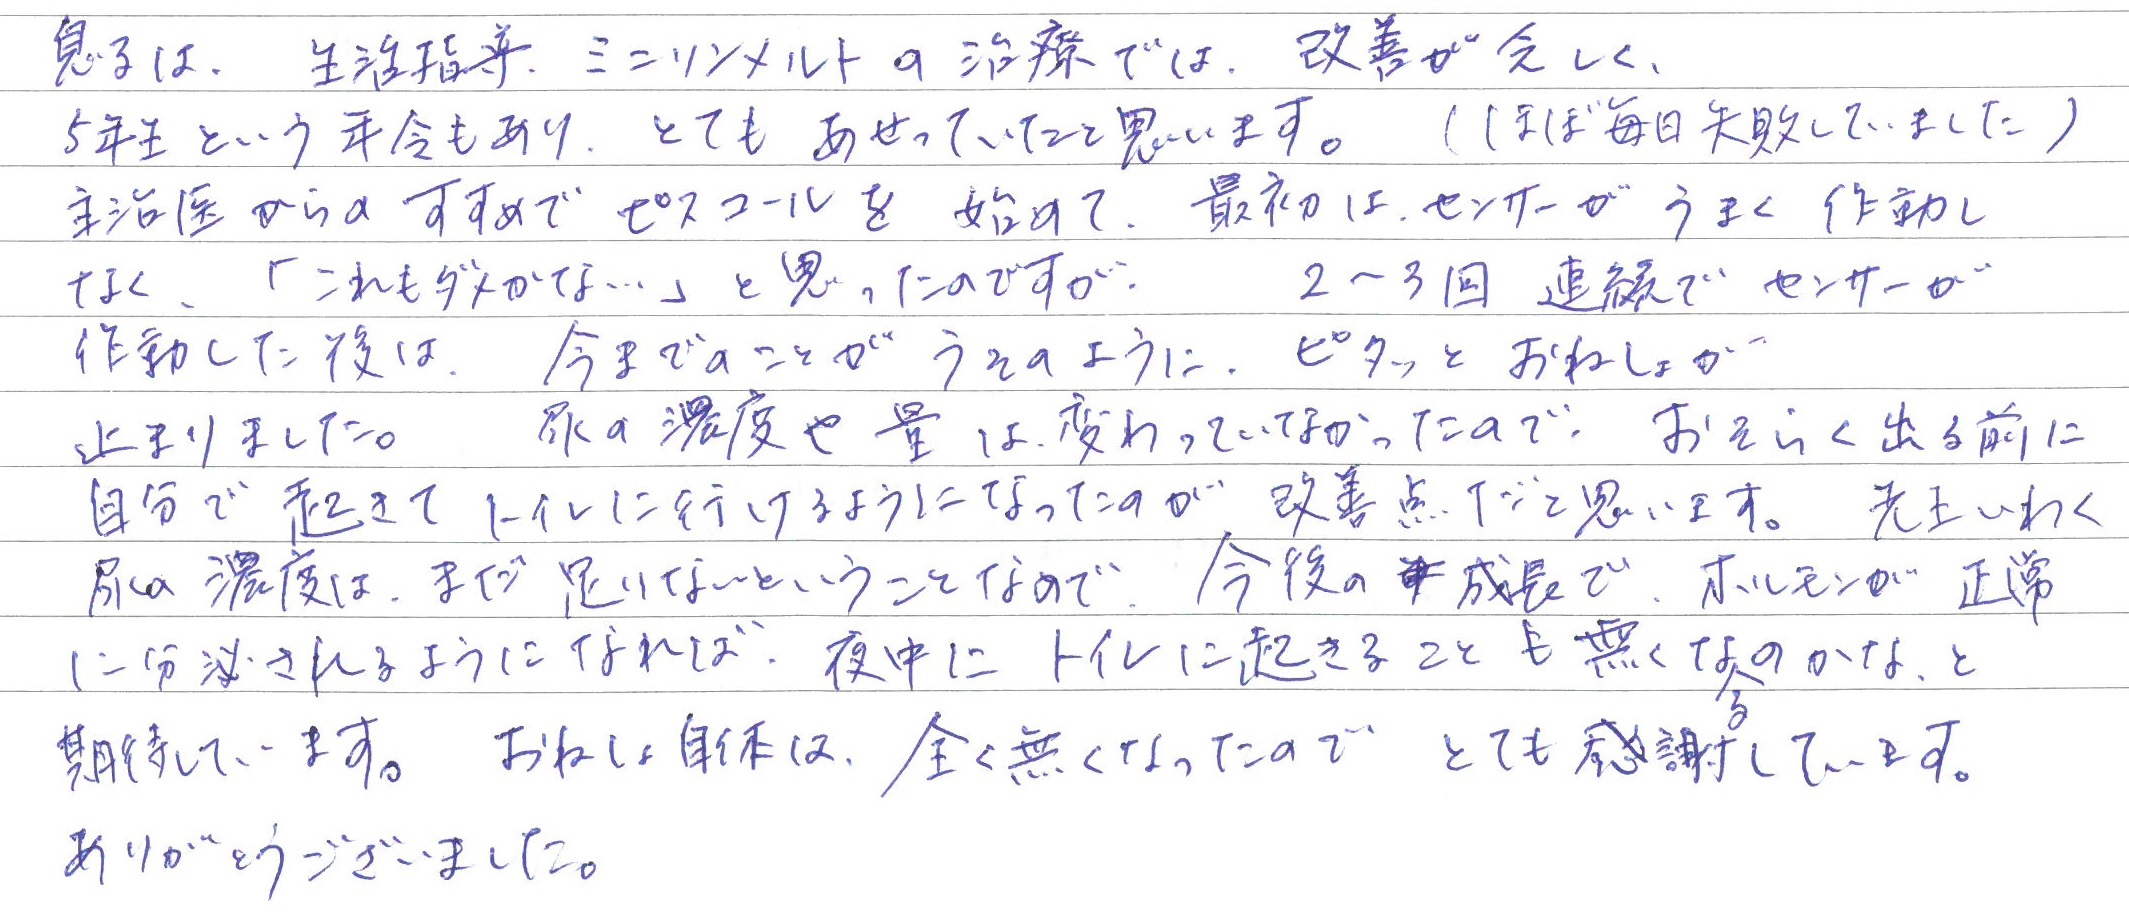 息子は、生活指導、ミニリンメルトの治療では、改善が乏しく、
5年生という年令もあり、とてもあせっていたと思います。（ほぼ毎日失敗していました）
主治医からのすすめでピスコールを始めて、最初は、センサーがうまく作動し
なく、「これもダメかな…」と思ったのですが、2～3回連続でセンサーが
作動した後は、今までのことがうそのように、ピタッとおねしょが
止まりました。尿の濃度や量は、変わっていなかったので、おそらく出る前に
自分で起きてトイレに行けるようになったのが改善点だと思います。先生いわく
尿の濃度は、まだ足りないということなので、今後の成長で、ホルモンが正常
に分泌されるようになれば、夜中にトイレに起きることも無くなるのかな、と
期待しています。おねしょ自体は、全く無くなったのでとても感謝しています。
ありがとうございました。